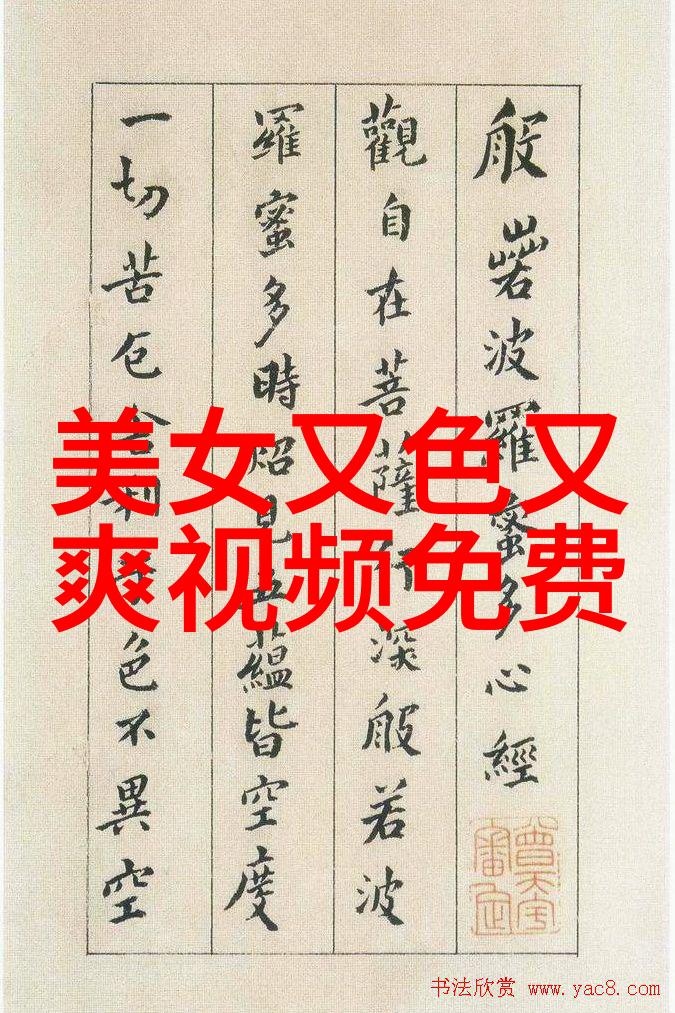 般若波羅蜜多心經
觀自在菩薩行深般若波
羅蜜多時炤見五蘊皆空度
一切苦厄舍利子色不異空
美女又色又
爽视频免费
书法欣赏 www.yac8.com